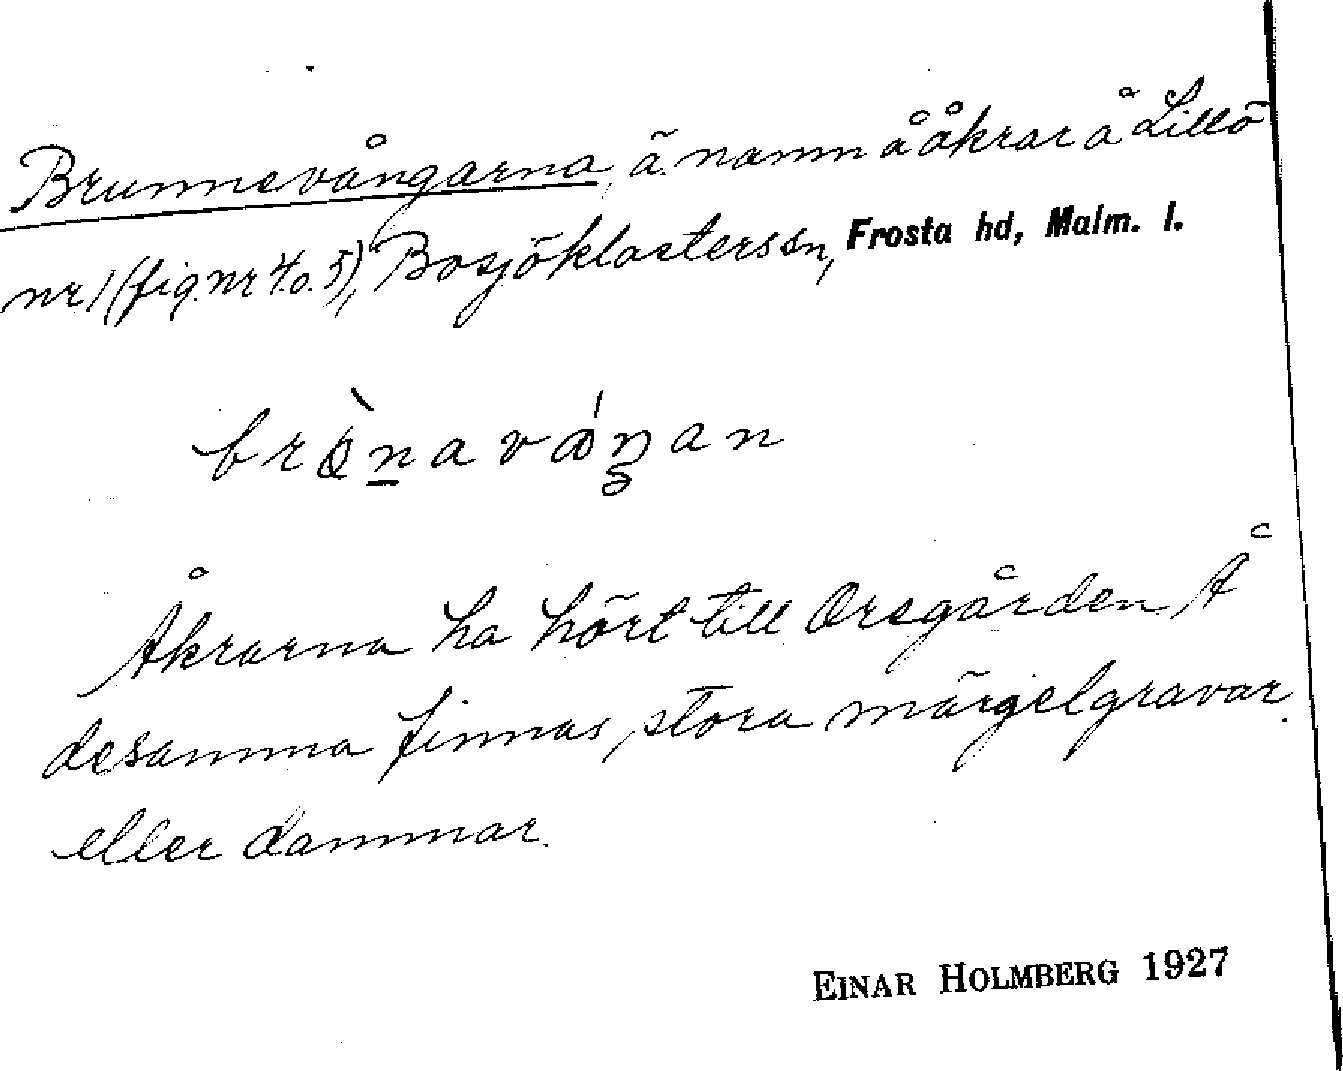 Brunnevångarna, ä. namn å åkrar å Lillö
nr 1 (fig. nr 4 o. 5), Bosjöklosters sn, Frosta hd, Malm. l.
Åkrarna ha hört till Orsgården. Å
desamma finnas stora märgelgravar
eller dammar.
EINAR HOLMBERG 1927